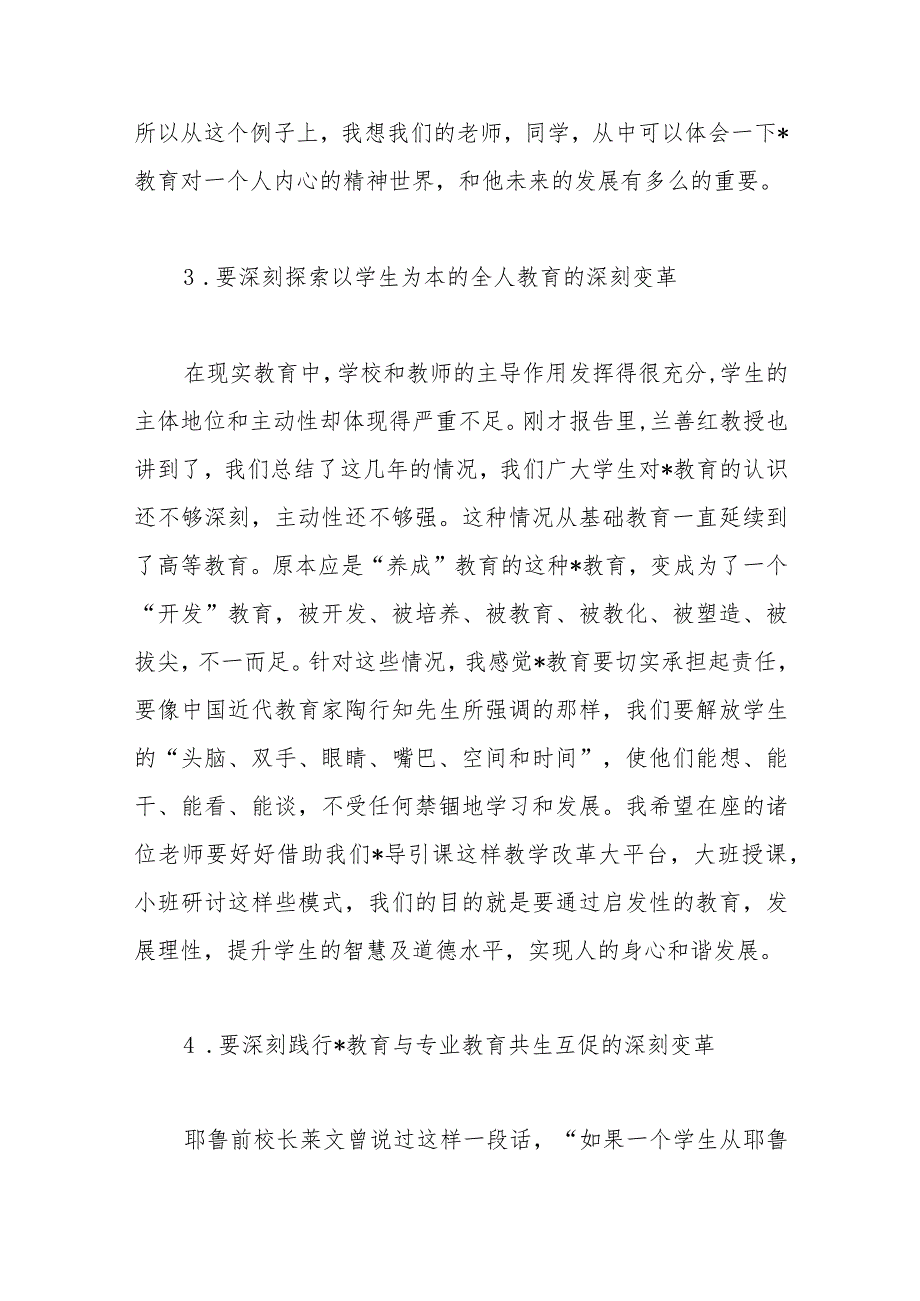 所以从这个例子上，我想我们的老师，同学，从中可以体会一下*
教育对一个人内心的精神世界，和他未来的发展有多么的重要。
3.要深刻探索以学生为本的全人教育的深刻变革
在现实教育中，学校和教师的主导作用发挥得很充分,学生的
主体地位和主动性却体现得严重不足。刚才报告里,兰善红教授也
讲到了，我们总结了这几年的情况，我们广大学生对*教育的认识
还不够深刻，主动性还不够强。这种情况从基础教育一直延续到
了高等教育。原本应是“养成”教育的这种*教育，变成为了一个
“开发”教育，被开发、被培养、被教育、被教化、被塑造、被
拔尖，不一而足。针对这些情况，我感觉*教育要切实承担起责任，
要像中国近代教育家陶行知先生所强调的那样，我们要解放学生
的“头脑、双手、眼睛、嘴巴、空间和时间”，使他们能想、能
干、能看、能谈，不受任何禁锢地学习和发展。我希望在座的诸
位老师要好好借助我们*导引课这样教学改革大平台，大班授课，
小班研讨这样些模式，我们的目的就是要通过启发性的教育，发
展理性，提升学生的智慧及道德水平，实现人的身心和谐发展。
4.要深刻践行*教育与专业教育共生互促的深刻变革
耶鲁前校长莱文曾说过这样一段话，“如果一个学生从耶鲁